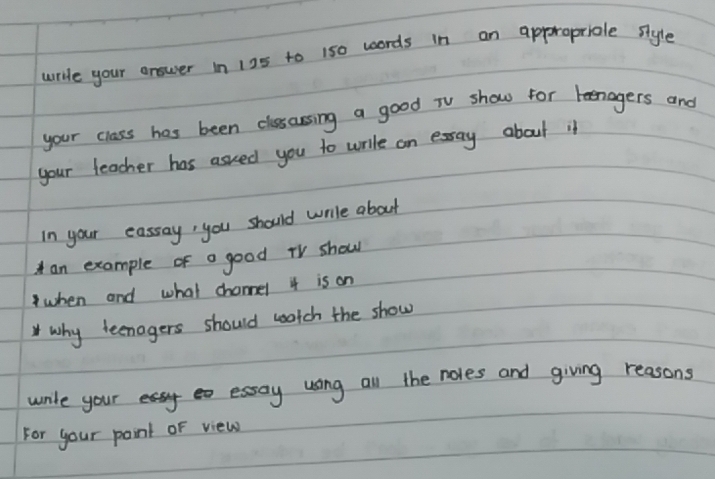 write your answer in 125 to 150 words in an appropriale style
your class has been dissassing a good TV show for teenagers and
your teacher has asked you to write an essay about it
In your eassay, you should write about
* an example of a good TV show
* when and what channel it is on
* why teenagers should watch the show
write your essy eo essay using all the notes and giving reasons
for your point of view